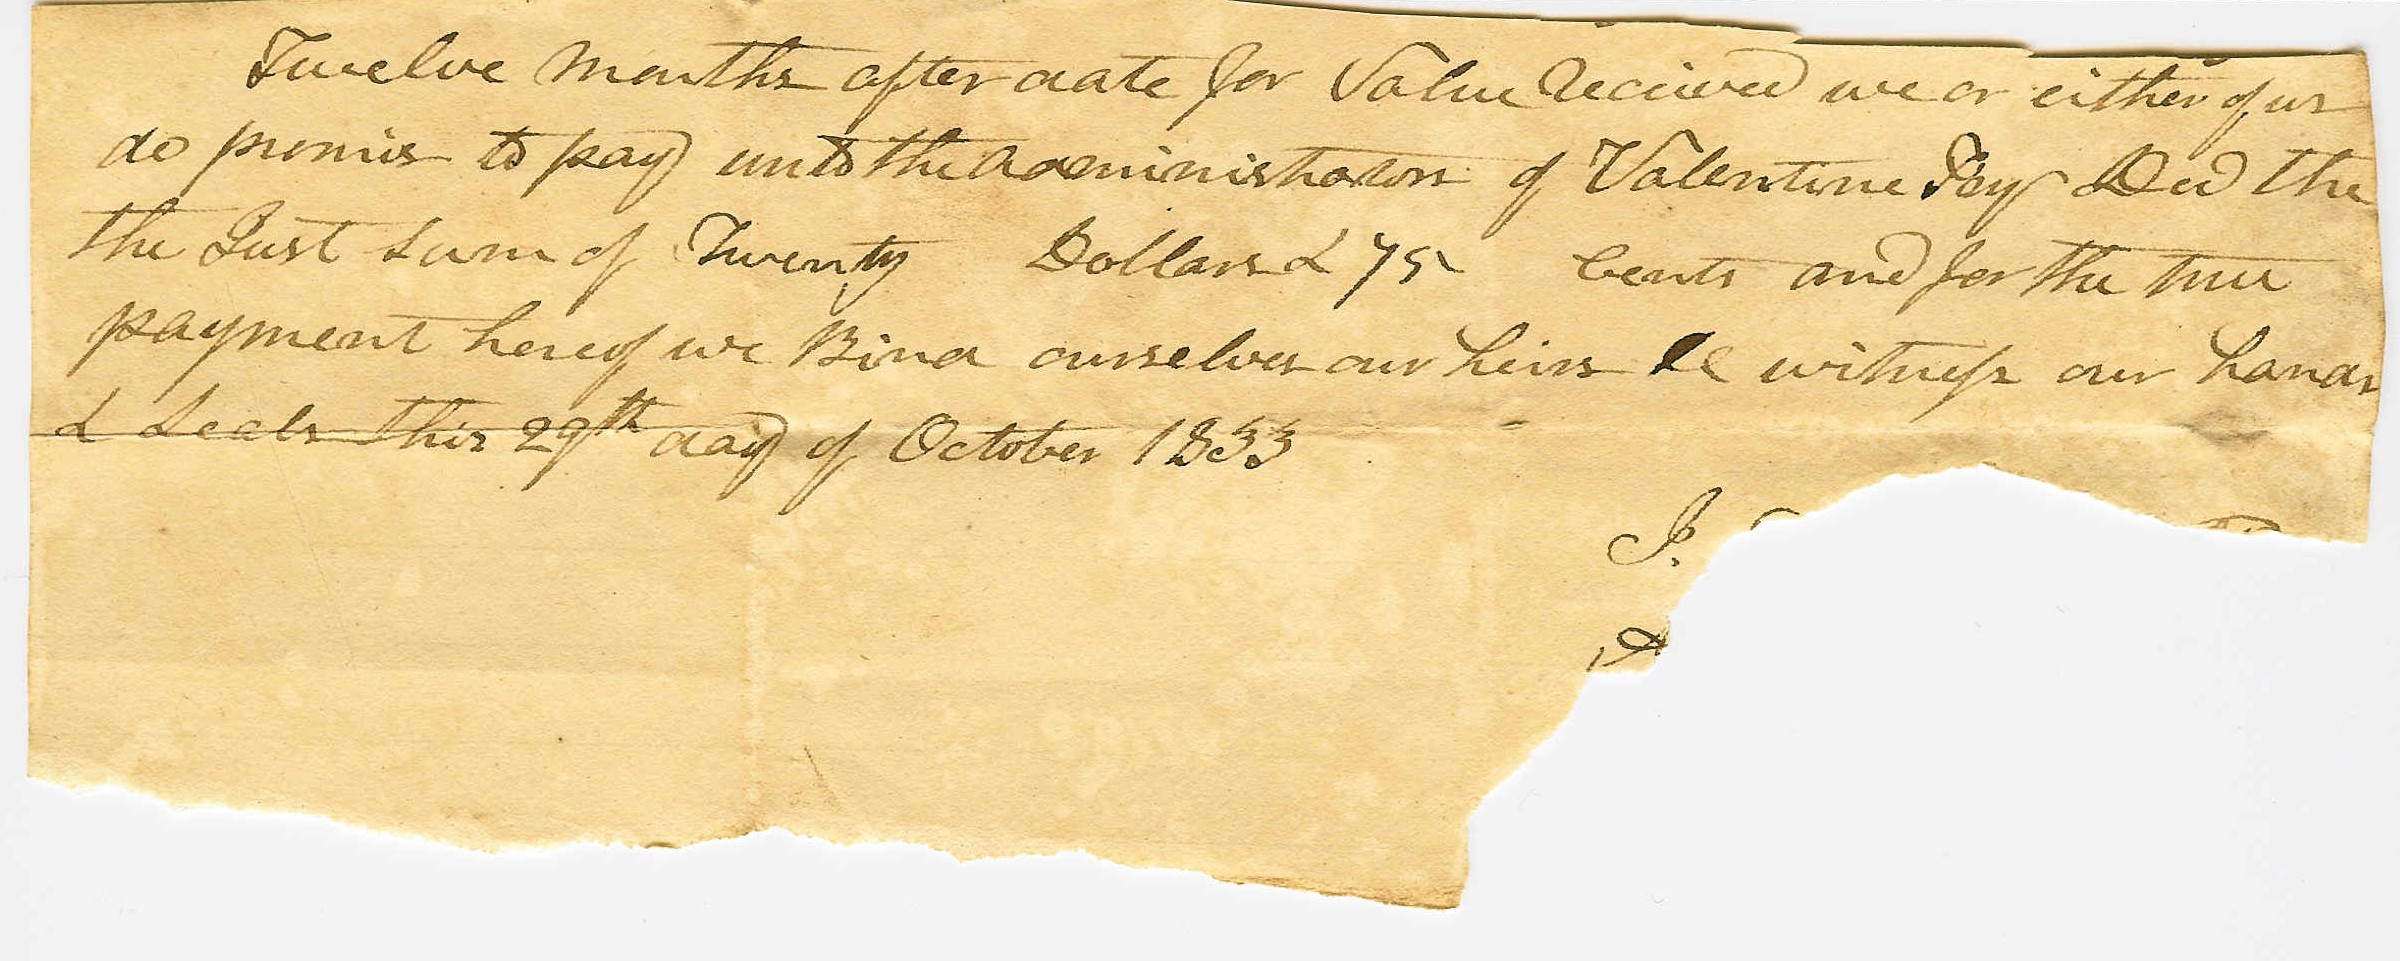 Twelve Months after date for Value Received we or either of us
do promis to pay unto the Administrators of Valentine Fey Decd the
the Just sum of Twenty Dollars & 75 Cents and for the true
payment hereof we Bind ourselves our heirs &c witness our hands
& Seals this 29th day of October 1833
J.
A